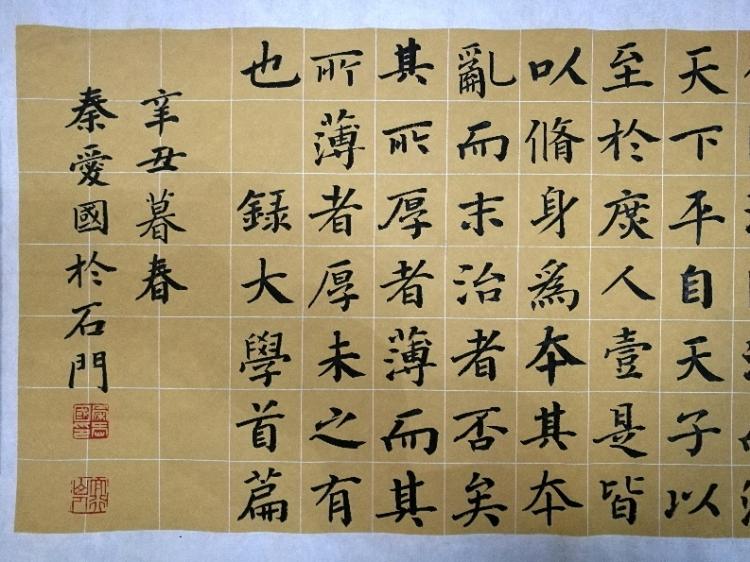 天下平自天子以
至於庶人壹是皆
以脩身爲本其本
亂而末治者否矣
其所厚者薄而其
所薄者厚未之有
也 錄大學首篇
辛丑暮春
秦愛國於石門